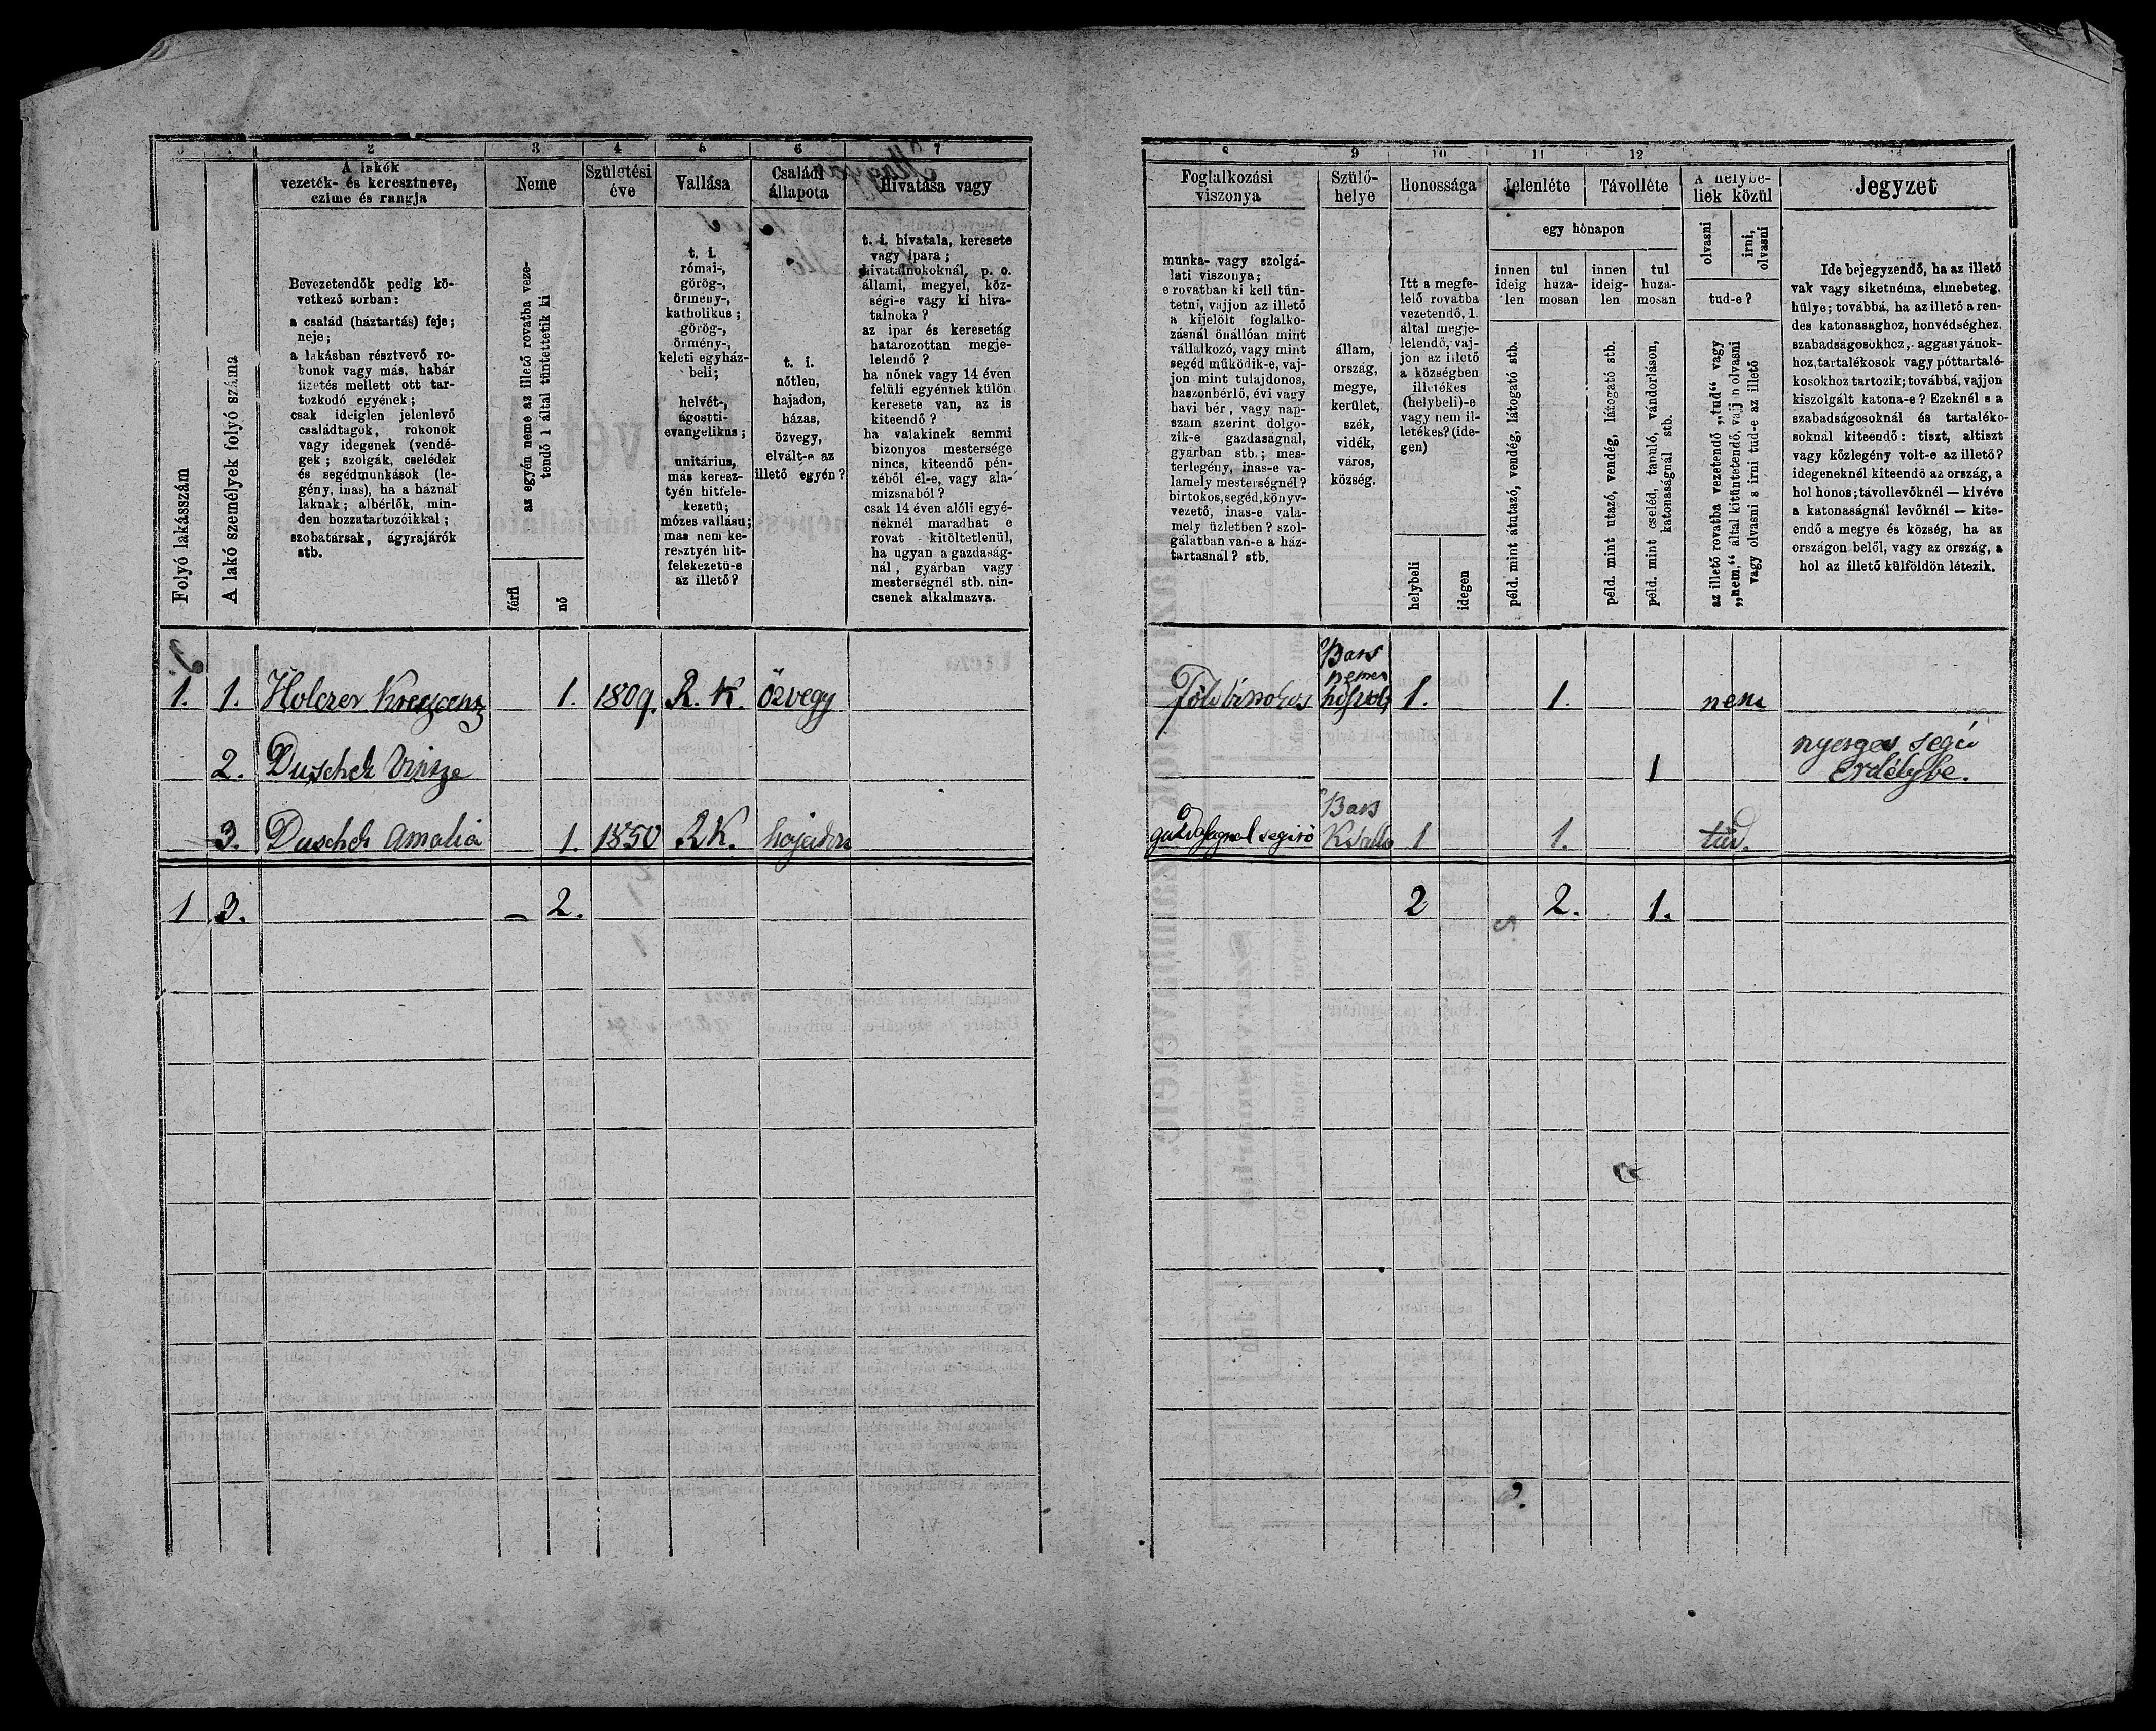 2 3 4 5 6 7
A lakók
vezeték- és keresztneve,
czime és rangja
Neme
Születési
éve
Vallása
Családi
állapota
Hivatása vagy
Folyó lakásszám
A lakó személyek folyó száma
Bevezetendők pedig kö-
vetkező sorban:
a család (háztartás) feje;
neje;
a lakásban résztvevő ro-
konok vagy más, habár
fizetés mellett ott tar-
tozkodó egyének;
csak ideiglen jelenlevő
családtagok, rokonok
vagy idegenek (vendé-
gek; szolgák, cselédek
és segédmunkások (le-
gény, inas), ha a háznál
laknak; albérlők, min-
den hozzatartozóikkal;
szobatársak, ágyrajárók
stb.
az egyén neme az illető rovatba veze-
tendő 1 által tüntettetik ki
férfi
nő
t. i.
római-,
görög-,
örmény-,
katholikus;
görög-,
örmény-,
keleti egyház-
beli;
helvét-,
ágostti-
evangelikus;
unitárius,
más keresz-
tyén hitfele-
kezetü;
mózes vallásu;
mas nem ke-
resztyén hit-
felekezetü-e
az illető?
t. i.
nőtlen,
hajadon,
házas,
özvegy,
elvált-e az
illető egyén?
t. i. hivatala, keresete
vagy ipara;
hivatalnokoknál, p. o.
állami, megyei, köz-
ségi-e vagy ki hiva-
talnoka?
az ipar és keresetág
határozottan megje-
lelendő?
ha nőnek vagy 14 éven
felüli egyénnek külön
keresete van, az is
kiteendő?
ha valakinek semmi
bizonyos mestersége
nincs, kiteendő pén-
zéből él-e, vagy ala-
mizsnából?
csak 14 éven alóli egyé-
neknél maradhat e
rovat kitöltetlenül,
ha ugyan a gazdaság-
nál, gyárban vagy
mesterségnél stb. nin-
csenek alkalmazva.
1. 1. Holczer Kreszcenz 1. 1809. R. K. Özvegy
2. Duschek Vincze
3. Duschek Amalia 1. 1850 R K. hajadon
1 3. – 2.
8 9 10 11 12
Foglalkozási
viszonya
Szülő-
helye
Honossága
Jelenléte
Távolléte
A helybe-
liek közül
Jegyzet
munka- vagy szolgá-
lati viszonya;
e rovatban ki kell tün-
tetni, vajjon az illető
a kijelölt foglalko-
zásnál önállóan mint
vállalkozó, vagy mint
segéd működik-e, vaj-
jon mint tulajdonos,
haszonbérlő, évi vagy
havi bér, vagy nap-
szam szerint dolgo-
zik-e gazdaságnal,
gyarban stb.; mes-
terlegény, inas-e va-
lamely mesterségnél?
birtokos, segéd, könyv-
vezető, inas-e vala-
mely üzletben? szol-
gálatban van-e a ház-
tartasnál? stb.
állam,
ország,
megye,
kerület,
szék,
vidék,
város,
község.
Itt a megfe-
lelő rovatba
vezetendő, 1.
által megje-
lelendő, vaj-
jon az illető
a községben
illetékes
(helybeli)-e
vagy nem il-
letékes? (ide-
gen)
helybeli
idegen
egy hónapon
innen
ideig
len
tul
huza-
mosan
innen
ideig-
len
tul
huza-
mosan
péld. mint átutazó, vendég, látogató stb.
péld. mint utazó, vendég, látogató stb.
péld. mint cseléd, tanuló, vándorláson,
katonaságnál stb.
olvasni
irni,
olvasni
tud-e?
az illető rovatba vezetendő „tud“ vagy
„nem,“ által kitüntetendő, vajjon olvasni
vagy olvasni s irni tud-e az illető
Ide bejegyzendő, ha az illető
vak vagy siketnéma, elmebeteg,
hülye; továbbá, ha az illető a ren-
des katonasághoz, honvédséghez,
szabadságosokhoz, aggastyánok-
hoz, tartalékosok vagy póttartalé-
kosokhoz tartozik; továbbá, vajjon
kiszolgált katona-e? Ezeknél s a
szabadságosoknál és tartaléko-
soknál kiteendő: tiszt, altiszt
vagy közlegény volt-e az illető?
idegeneknél kiteendő az ország, a
hol honos; távollevőknél — kivéve
a katonaságnál levőknél — kite-
endő a megye és község, ha az
országon belől, vagy az ország, a
hol az illető külföldön létezik.
Bars
nemes
Föld birtokos 1. 1. nem
1 nyerges segéd
Erdélybe.
Bars
gazdaságnal segitő 1 1. tud.
2 2. 1.